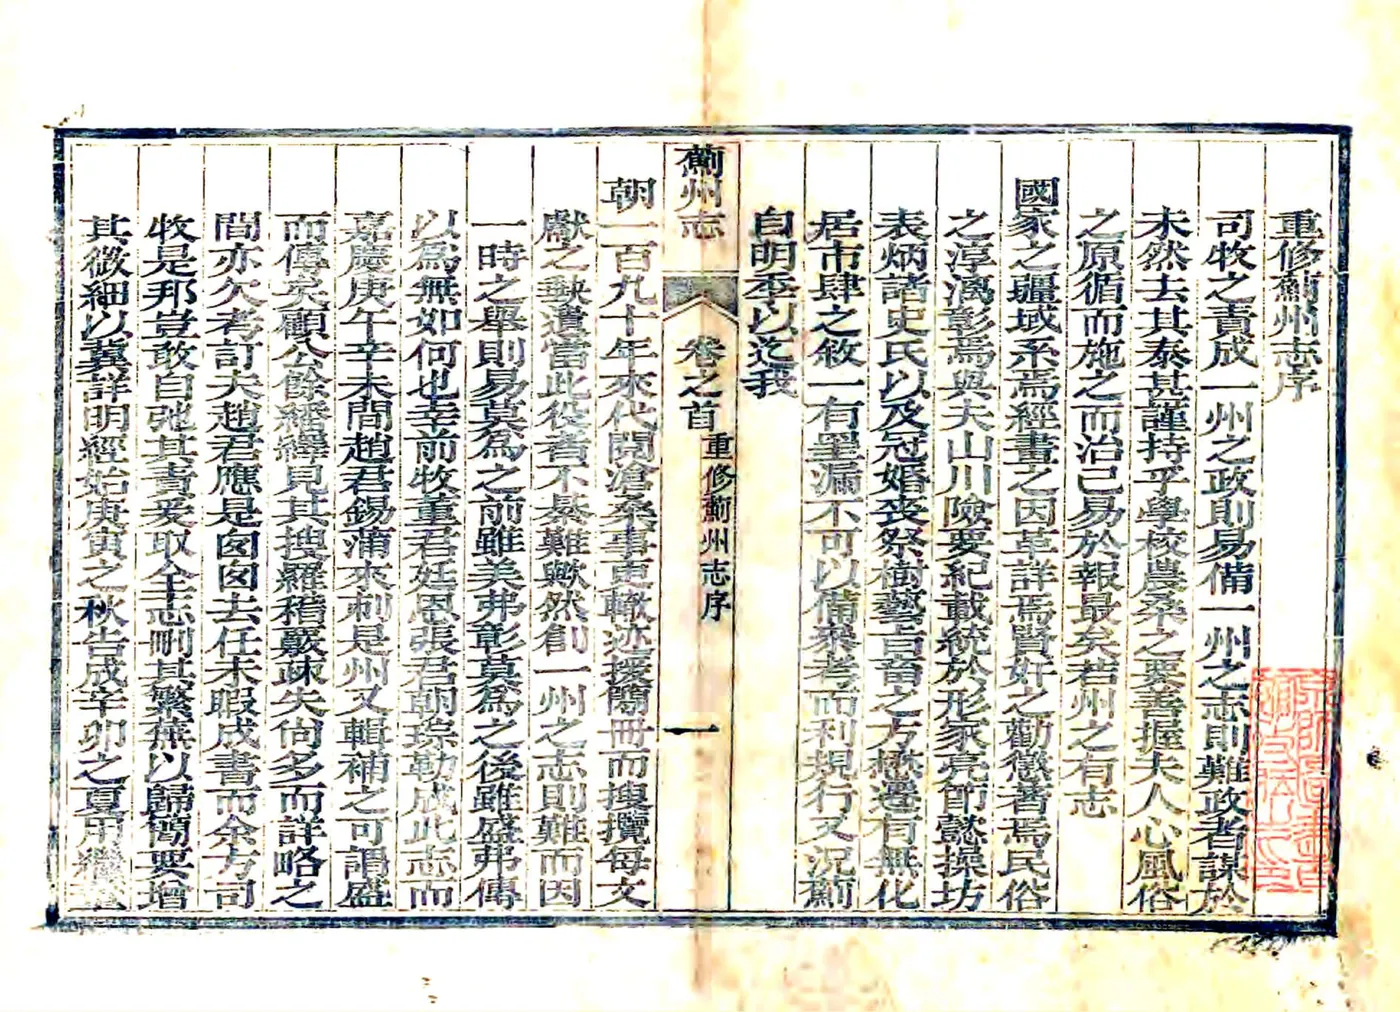 重修薊州志序
司牧之責成一州之政則易備一州之志則難政者謀於
未然去其泰甚謹持乎學校農桑之要善握夫人心風俗
之原循而施之而治己易於報最矣若州之有志
國家之疆域系焉經畫之因革詳焉賢奸之勸懲著焉民俗
之淳漓彰焉與夫山川險要紀載統於形家亮節懿操坊
表炳諸史氏以及冠婚喪祭樹藝畜之方懋遷有無化
居市肆之敘一有墨漏不可以備棃考而利規行又況薊
自明季以迄我
薊州志
卷之首
重修薊州志序
一
朝一百九十年來代閱滄桑事更轍迹援簡冊而搜攬每文
獻之缺遺當此役者不綦難歟然創一州之志則難而因
一時之舉則易莫為之前雖美弗彰莫為之後雖盛弗傳
以為無如何也幸前牧董君廷恩張君朝琮勒成此志而
嘉慶庚午辛未間趙君錫蒲來刺是州又輯補之可謂盛
而傳矣顧公餘繙繹見其搜羅稽覈疎失尚多而詳略之
間亦欠考訂夫趙君應是匆匆去任未暇成書而余方司
牧是邦豈敢自弛其責爰取全志刪其繁蕪以歸簡要增
其微細以冀詳明經始庚寅之秋告成辛卯之夏用繼